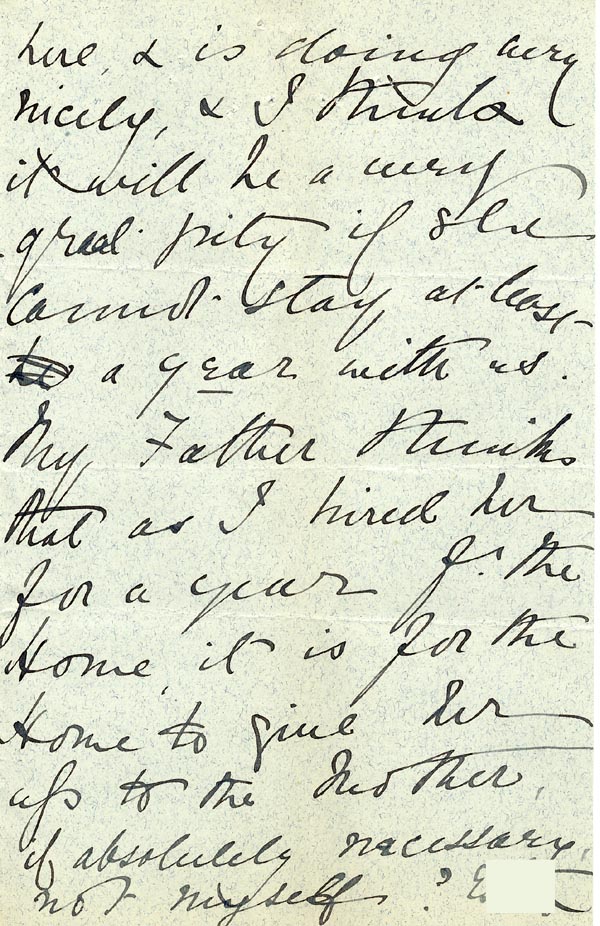 here, & is doing very
nicely, & I think
it will be a very
great pity if she
cannot stay at least
a year with us.
My Father thinks
that as I hired her
for a year fr. the
Home, it is for the
Home to give her
up to the Mother,
if absolutely necessary,
not myself?